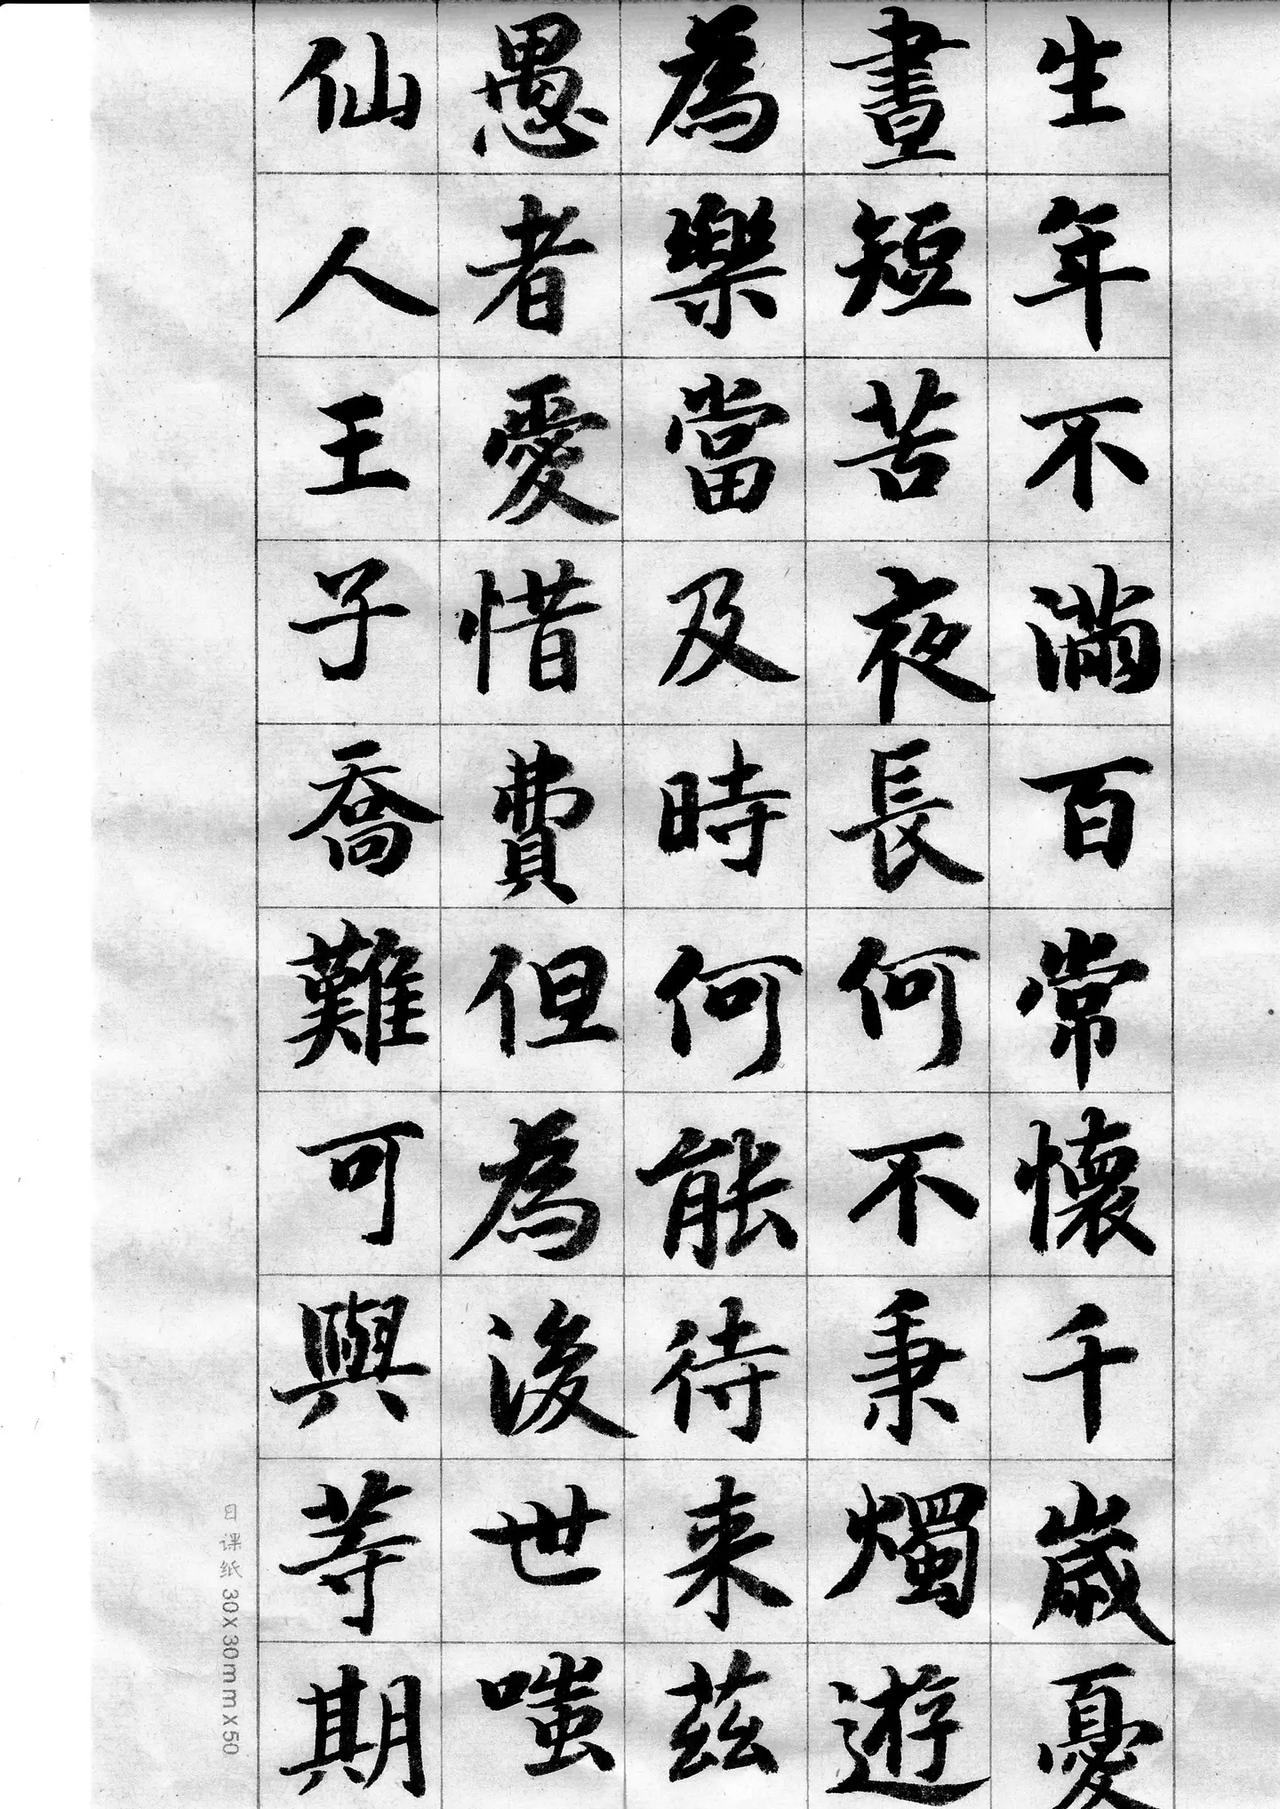 生年不滿百常懷千歲憂
晝短苦夜長何不秉燭遊
為樂當及時何能待来茲
愚者愛惜費但為後世嗤
仙人王子喬難可與等期
日课纸 30X30mmX50